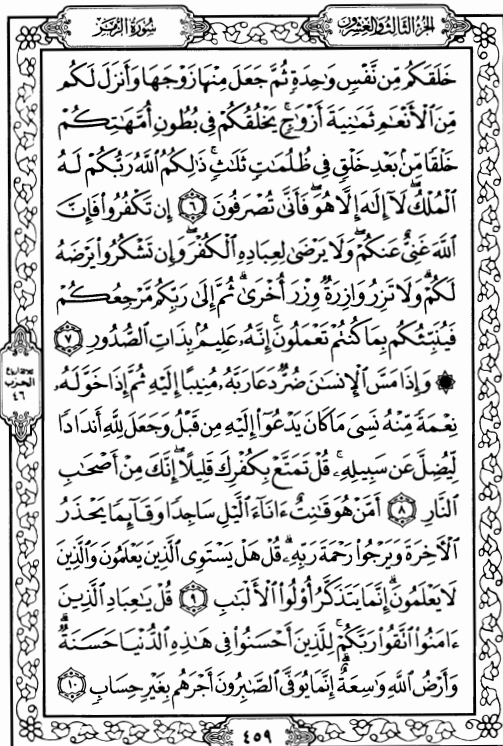 الجزء الثالث والعشرون سورة الزمر
خَلَقَكُم مِّن نَّفْسٍ وَٰحِدَةٍ ثُمَّ جَعَلَ مِنْهَا زَوْجَهَا وَأَنزَلَ لَكُم
مِّنَ ٱلْأَنْعَٰمِ ثَمَٰنِيَةَ أَزْوَٰجٍ ۚ يَخْلُقُكُمْ فِى بُطُونِ أُمَّهَٰتِكُمْ
خَلْقًا مِّنۢ بَعْدِ خَلْقٍ فِى ظُلُمَٰتٍ ثَلَٰثٍ ۚ ذَٰلِكُمُ ٱللَّهُ رَبُّكُمْ لَهُ
ٱلْمُلْكُ ۖ لَآ إِلَٰهَ إِلَّا هُوَ ۖ فَأَنَّىٰ تُصْرَفُونَ ٦ إِن تَكْفُرُوا۟ فَإِنَّ
ٱللَّهَ غَنِىٌّ عَنكُمْ ۖ وَلَا يَرْضَىٰ لِعِبَادِهِ ٱلْكُفْرَ ۖ وَإِن تَشْكُرُوا۟ يَرْضَهُ
لَكُمْ ۗ وَلَا تَزِرُ وَازِرَةٌ وِزْرَ أُخْرَىٰ ۗ ثُمَّ إِلَىٰ رَبِّكُم مَّرْجِعُكُمْ
فَيُنَبِّئُكُم بِمَا كُنتُمْ تَعْمَلُونَ ۚ إِنَّهُۥ عَلِيمٌۢ بِذَاتِ ٱلصُّدُورِ ٧
۞ وَإِذَا مَسَّ ٱلْإِنسَٰنَ ضُرٌّ دَعَا رَبَّهُۥ مُنِيبًا إِلَيْهِ ثُمَّ إِذَا خَوَّلَهُۥ
نِعْمَةً مِّنْهُ نَسِىَ مَا كَانَ يَدْعُوٓا۟ إِلَيْهِ مِن قَبْلُ وَجَعَلَ لِلَّهِ أَندَادًا
لِّيُضِلَّ عَن سَبِيلِهِۦ ۚ قُلْ تَمَتَّعْ بِكُفْرِكَ قَلِيلًا ۖ إِنَّكَ مِنْ أَصْحَٰبِ
ٱلنَّارِ ٨ أَمَّنْ هُوَ قَٰنِتٌ ءَانَآءَ ٱلَّيْلِ سَاجِدًا وَقَآئِمًا يَحْذَرُ
ٱلْءَاخِرَةَ وَيَرْجُوا۟ رَحْمَةَ رَبِّهِۦ ۗ قُلْ هَلْ يَسْتَوِى ٱلَّذِينَ يَعْلَمُونَ وَٱلَّذِينَ
لَا يَعْلَمُونَ ۗ إِنَّمَا يَتَذَكَّرُ أُو۟لُوا۟ ٱلْأَلْبَٰبِ ٩ قُلْ يَٰعِبَادِ ٱلَّذِينَ
ءَامَنُوا۟ ٱتَّقُوا۟ رَبَّكُمْ ۚ لِلَّذِينَ أَحْسَنُوا۟ فِى هَٰذِهِ ٱلدُّنْيَا حَسَنَةٌ ۗ
وَأَرْضُ ٱللَّهِ وَٰسِعَةٌ ۗ إِنَّمَا يُوَفَّى ٱلصَّٰبِرُونَ أَجْرَهُم بِغَيْرِ حِسَابٍ ١٠
الحزب
٤٦
٤٥٩